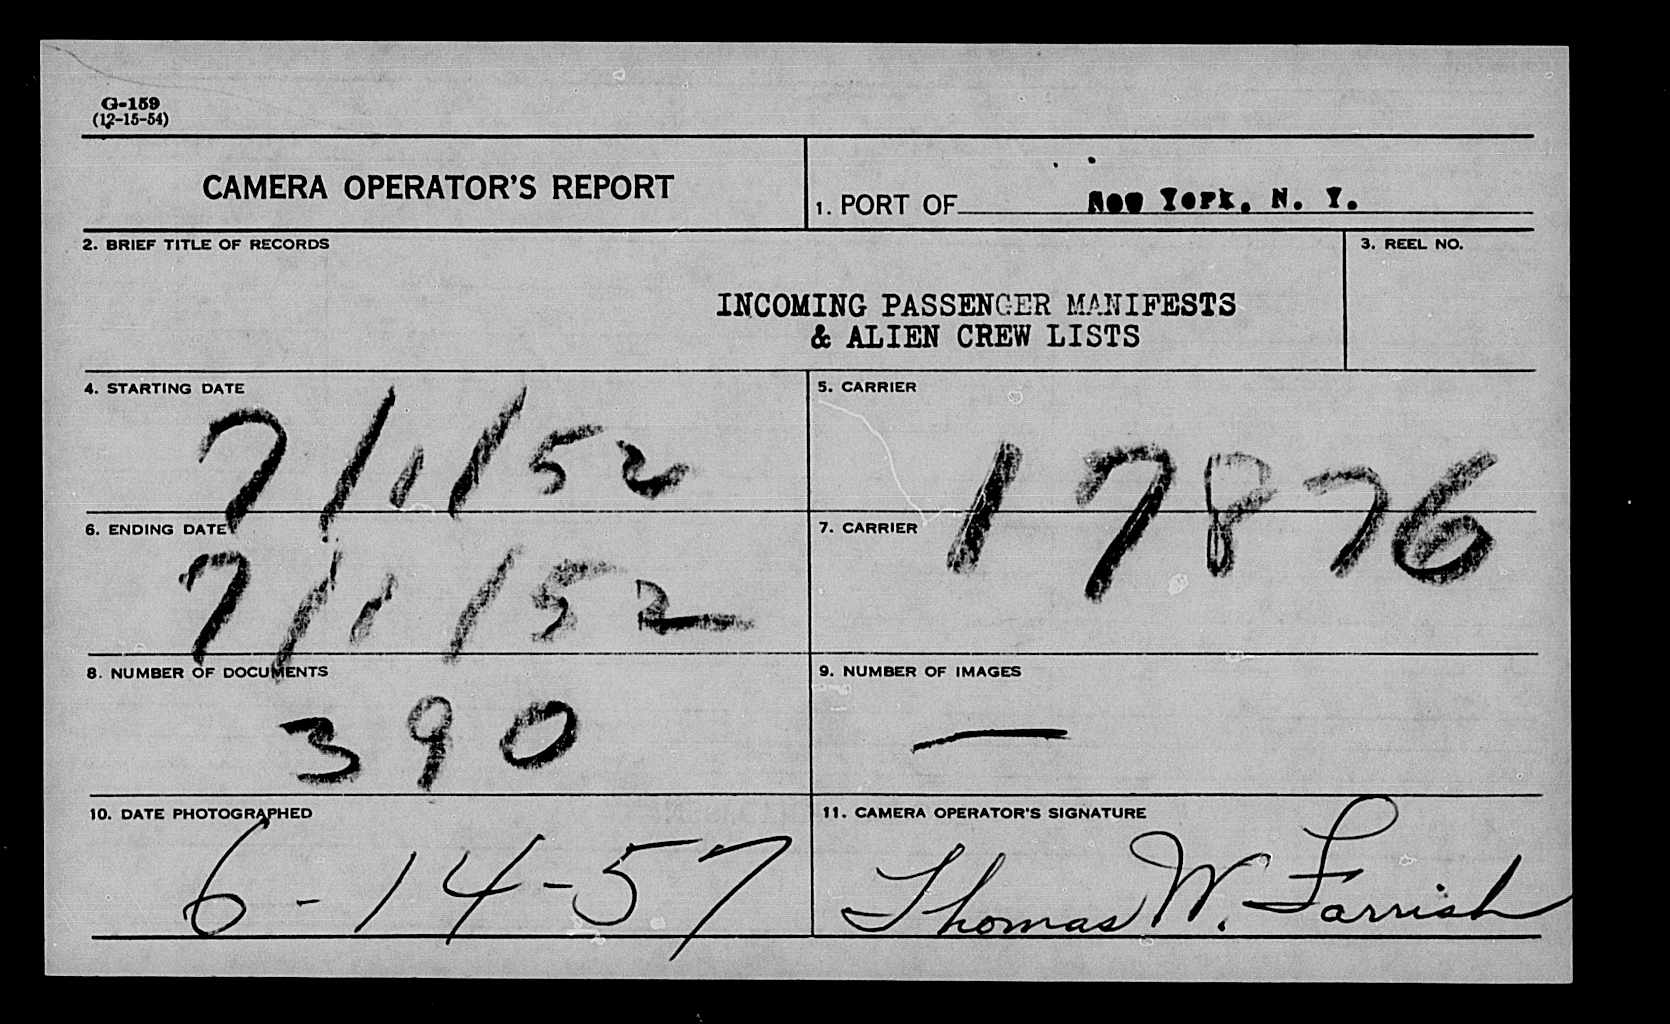 G-159
(12-15-54)
CAMERA OPERATOR'S REPORT
1. PORT OF New York, N. Y.
2. BRIEF TITLE OF RECORDS
3. REEL NO.
INCOMING PASSENGER MANIFESTS
& ALIEN CREW LISTS
4. STARTING DATE
7/1/52
5. CARRIER
17876
6. ENDING DATE
7/1/52
7. CARRIER
8. NUMBER OF DOCUMENTS
390
9. NUMBER OF IMAGES
—
10. DATE PHOTOGRAPHED
6-14-57
11. CAMERA OPERATOR'S SIGNATURE
Thomas W. Farrish